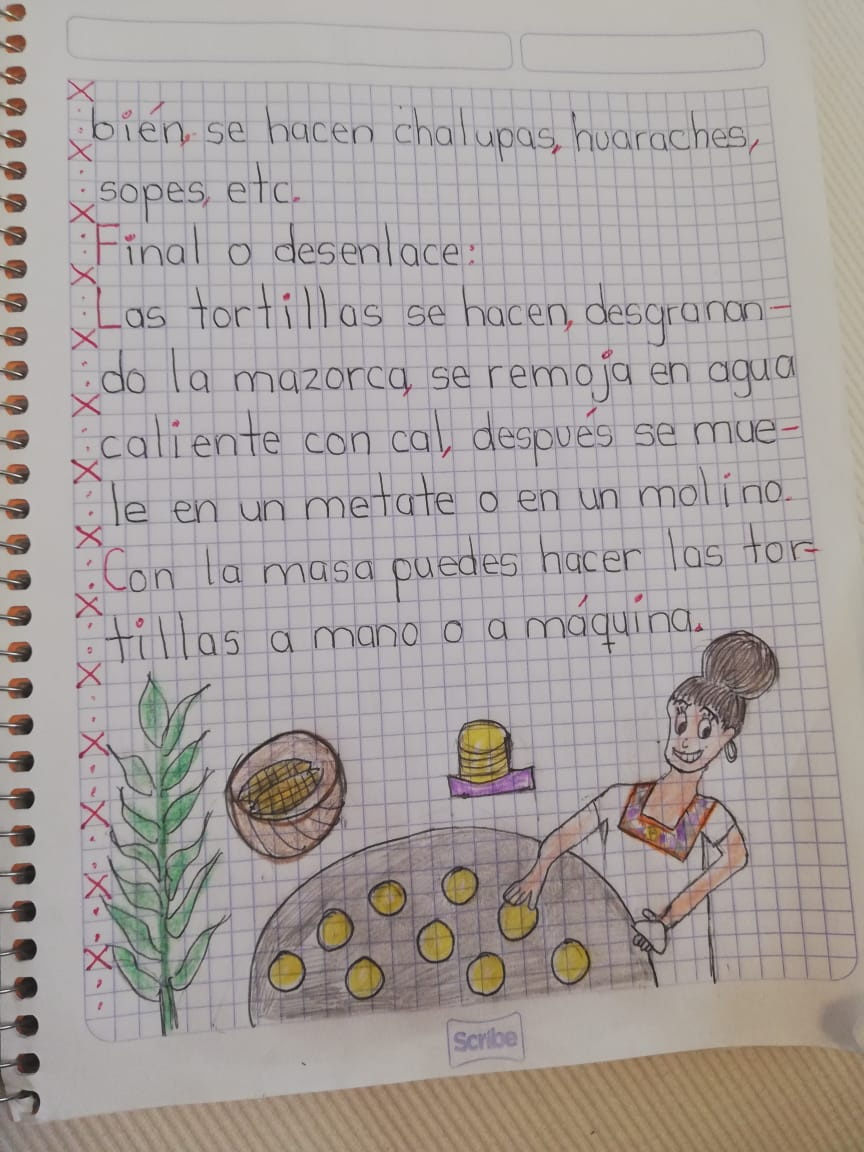 bién, se hacen chalupas, huaraches,
sopes, etc.
Final o desenlace:
Las tortillas se hacen, desgranan-
do la mazorca, se remoja en agua
caliente con cal, después se mue-
le en un metate o en un molino.
Con la masa puedes hacer las tor-
tillas a mano o a máquina.
Scribe